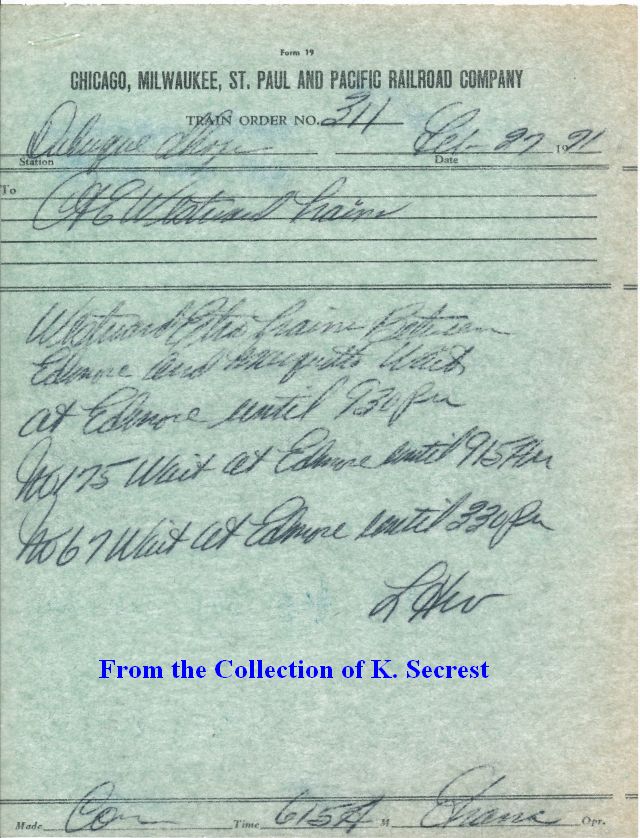 Form 19
CHICAGO, MILWAUKEE, ST. PAUL AND PACIFIC RAILROAD COMPANY
TRAIN ORDER NO. 311
Dubuque Shop 27 1971
Station Date
To C&E Westward Trains
Westward Extra trains Between
Edmore and Marquette Wait
at Edmore until 930 Pm
No 175 Wait at Edmore until 915 Am
No 67 Wait at Edmore until 330 Pm
From the Collection of K. Secrest
Made Com Time 615 A M Opr.